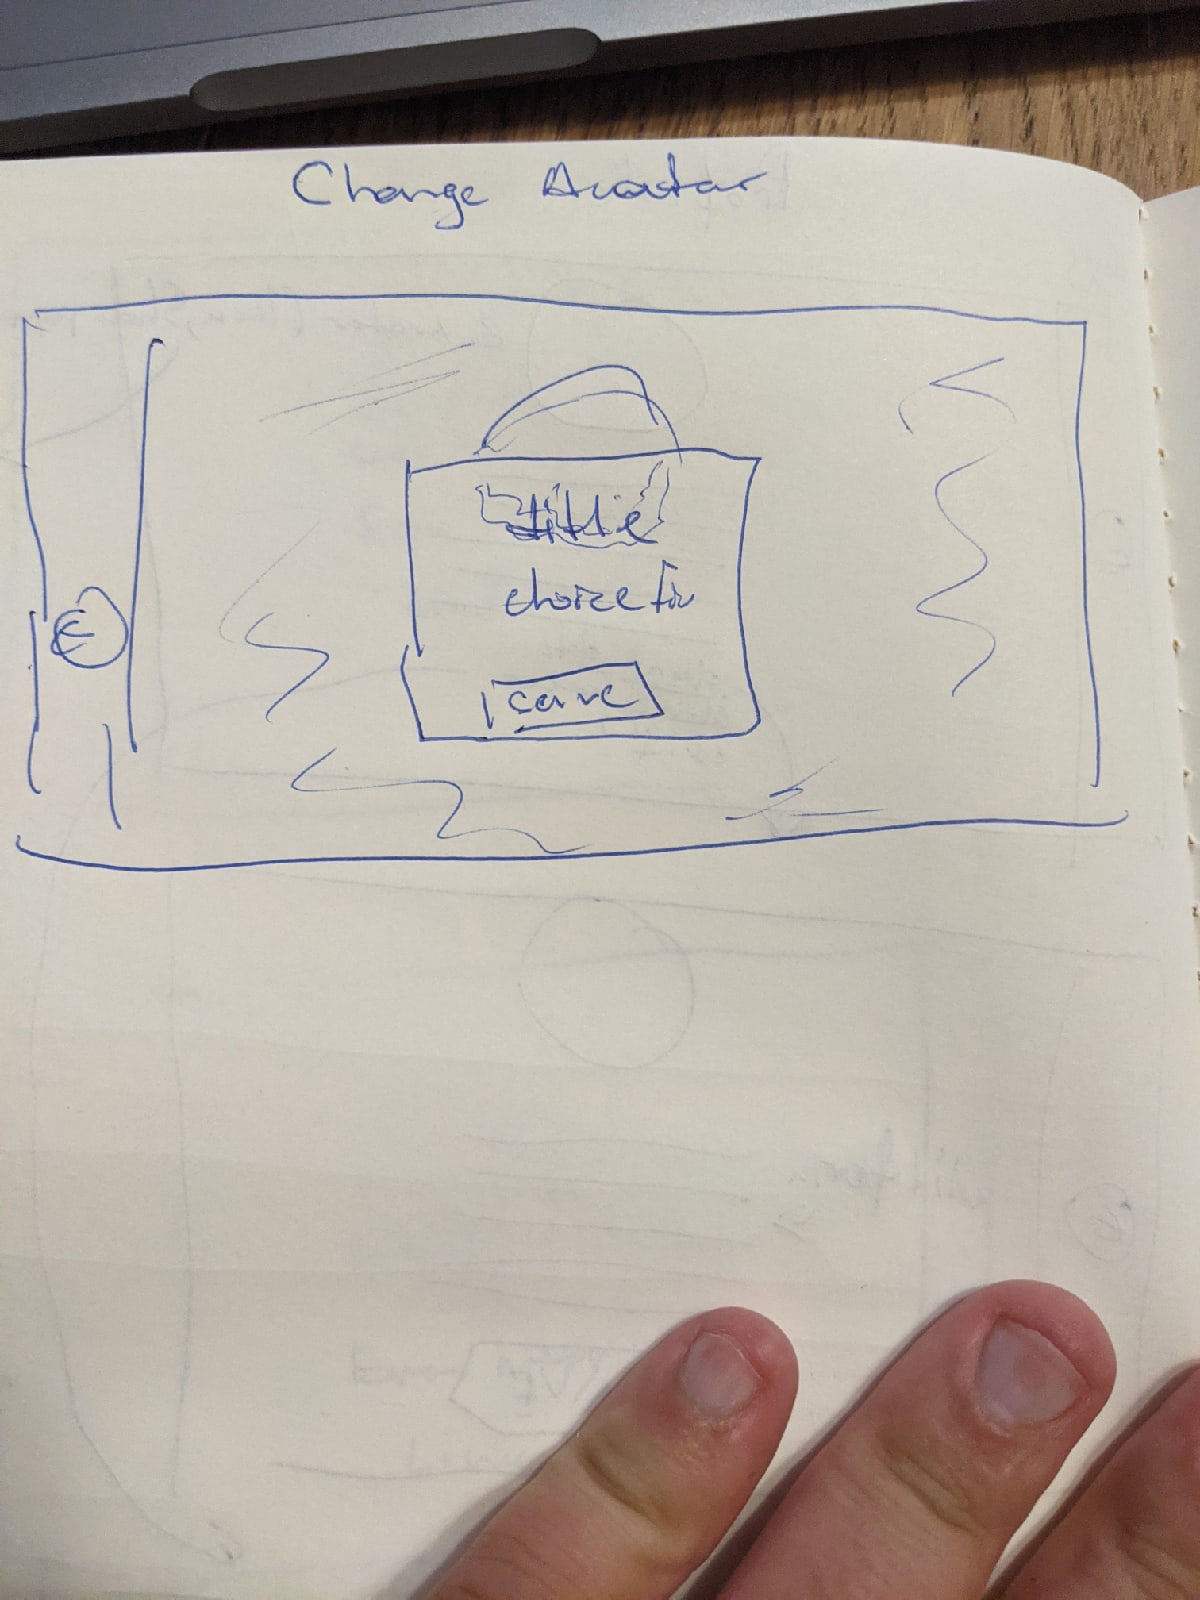 Change Avatar
title
choice
E
save